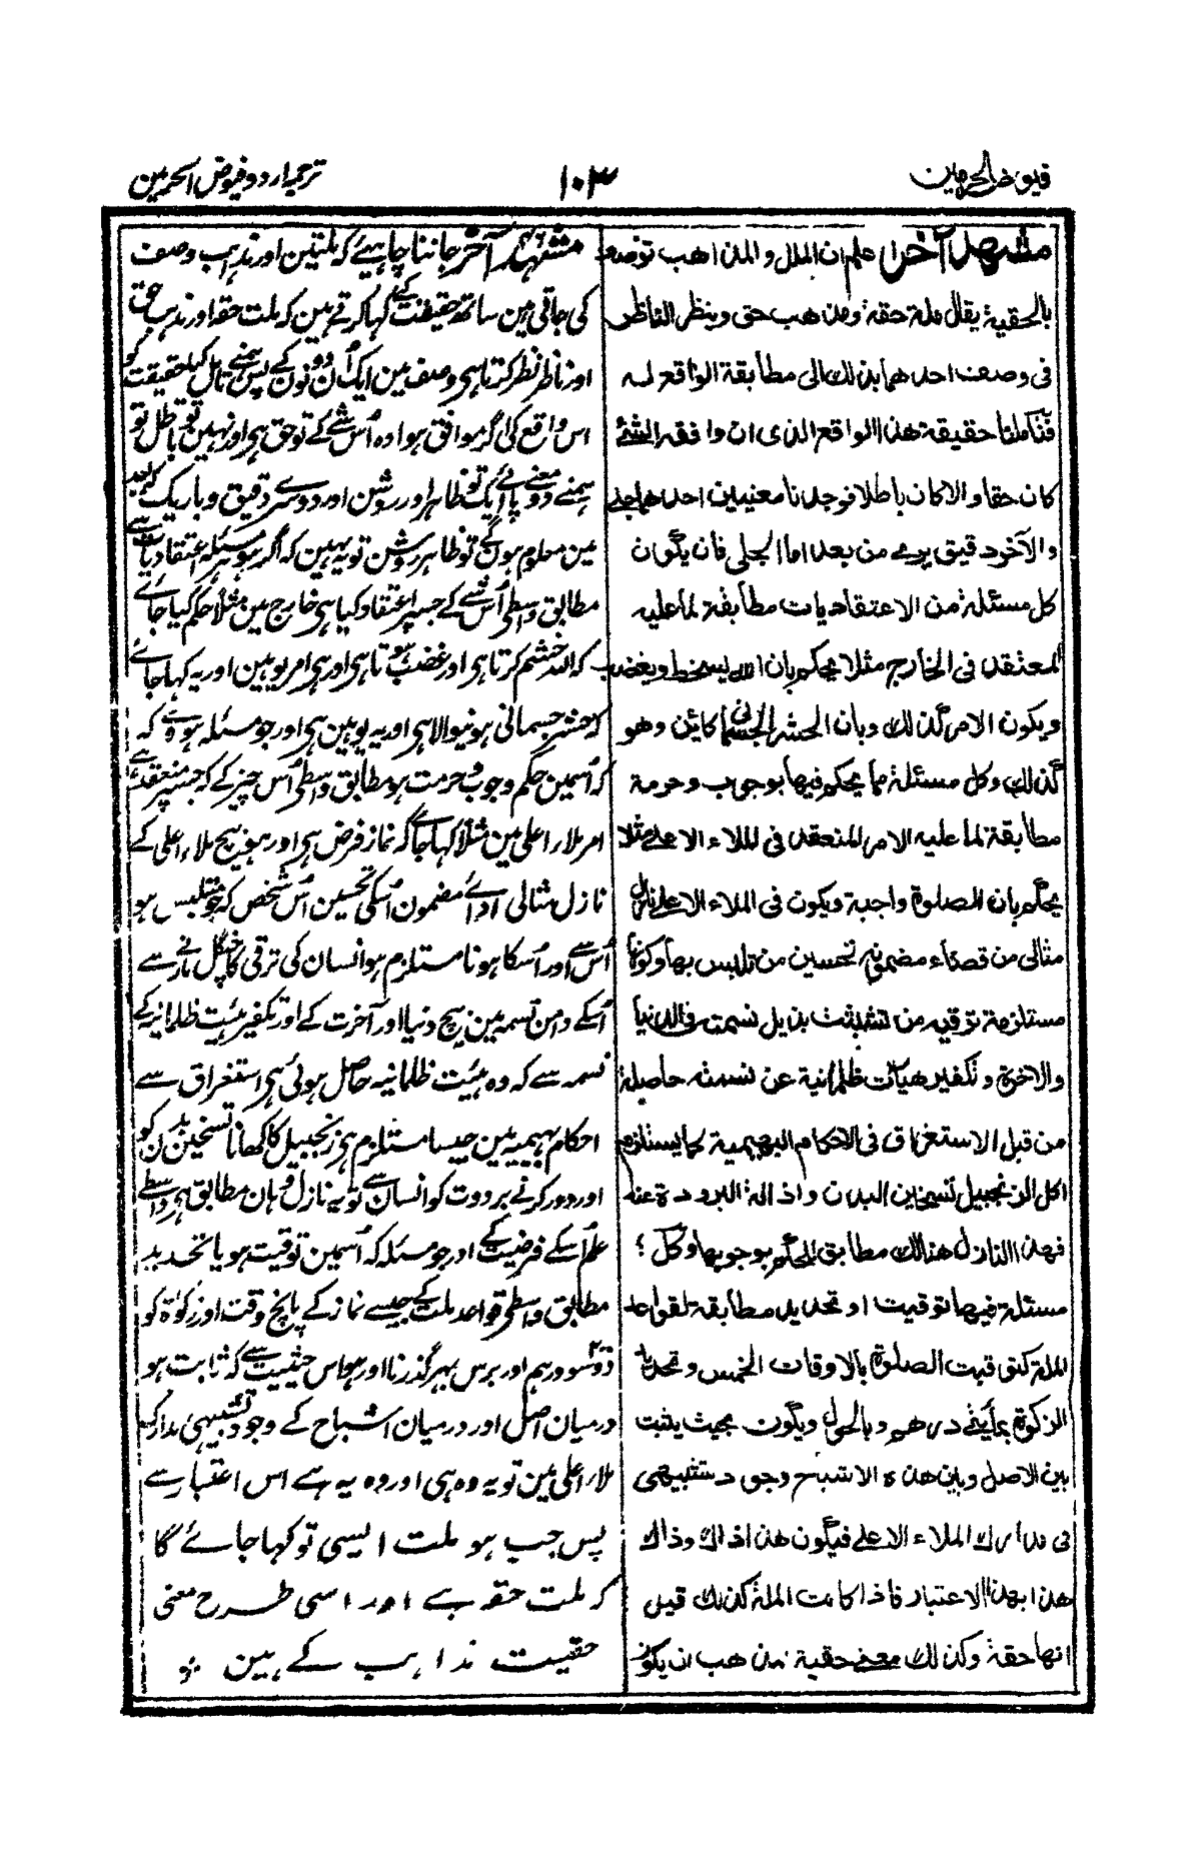 فيوض الحرمين
١٠٣
ترجمہ اردو فیوض الحرمین
مشهد آخر اعلم ان الملل والمذاهب توصف
بالحقية يقال ملة حقة ومذهب حق وينظر الناظر
فى وصف احدهما بذلك الى مطابقة الواقع له
فتأملنا حقيقة هذا الواقع الذى ان وافقه الشئ
كان حقا والا كان باطلا فوجدنا معنيين احدهما جلى
والآخر دقيق يرى من بعد اما الجلى فان يكون
كل مسئلة من الاعتقاديات مطابقة لما عليه
المعتقد فى الخارج مثلا يحكم بان الله يسخط ويغضب
ويكون الامر كذلك وبان الحشر الجسمانى كائن وهو
كذلك وكل مسئلة مما يحكم فيها بوجوب وحرمة
مطابقة لما عليه الامر المنعقد فى الملاء الاعلى مثلا
يحكم بان الصلوة واجبة ويكون فى الملاء الاعلى نازل
مثالى من قضاء مضمونه تحسين من تلبس بها وكونها
مستلزمة ترقيه من تشبثت بذيل نسمته فى الدنيا
والآخرة وتكفير هيآت ظلمانية عن نسمته حاصلة
من قبل الاستغراق فى الاحكام البهيمية كما يستلزم
اكل الزنجبيل تسخين البدن واذالة البرودة عنه
فهذا النازل هنالك مطابق الحكم بوجوبها وكل
مسئلة فيها توقيت او تحديد مطابقة لقواعد
الملة كتوقيت الصلوة بالاوقات الخمس وتحديد
الزكوة بمأيتى درهم وبالحول ويكون بحيث يثبت
بين الاصل وبين هذه الاشباح وجود تشبيهى
فى مدارك الملاء الاعلى فيكون هذا ذاك وذاك
هذا بهذا الاعتبار فاذا كانت الملة كذلك قيل
انها حقة وكذلك معنى حقية مذهب ان يكون
مشہد آخر جاننا چاہیئے کہ ملتین اور مذہب وصف
کی جاتی ہین ساتھ حقیقت کے کہا کرتے ہین کہ ملت حقہ اور مذہب حق
اور ناظر نظر کرتا ہی وصف مین ایک اُن دونون کے پس ہمنے تامل کیا حقیقت کو
اس واقع کی گر موافق ہو اوہ اُس شے کے تو حق ہی اور نہین تو باطل تو
ہمنے دو معنے پائے ایک تو ظاہر اور روشن اور دوسرے دقیق و باریک کہ بعد
مین معلوم ہون گے تو ظاہر روشن تو یہ ہین کہ اگر ہو مسئلہ اعتقادیات سے
مطابق واسطی اُس شے کے جسپر اعتقاد کیا ہی خارج مین مثلاً حکم کیا جائے
کہ اللہ خشم کرتا ہی اور غضب ہوتا ہی اور ہی امر یوہین اور یہ کہا جائے
کہ حشر جسمانی ہونیوالا ہی اور یہ یوہین ہی اور جو مسئلہ ہووے کہ
کہ اُسمین حکم وجوب و حرمت ہو مطابق واسطی اُس چیز کے کہ جسپر منعقد ہے
امر ملاء اعلی مین مثلاً کہا جائے گا کہ نماز فرض ہی اور ہووے بیچ ملاء اعلی کے
نازل مثالی ادائے مضمون اُسکی تحسین اُس شخص کہ جو متلبس ہو
اُس سے اور اُسکا ہونا مستلزم ہو انسان کی ترقی کا چنگل مارنے سے
اُسکے دامن نسمہ مین بیچ دنیا اور آخرت کے اور تکفیر ہیئت ظلمانیہ کے
نسمہ سے کہ وہ ہیئت ظلمانیہ حاصل ہوئی ہی استغراق سے
احکام بہیمیہ مین جیسا مستلزم ہی زنجبیل کا کھانا تسخین بدن کو
اور دور کرنے برودت کو انسان سے تو یہ نازل وہان مطابق ہی واسطے
علم اُسکے فرضیت کے اور جو مسئلہ کہ اُسمین توقیت ہو یا تحدید
مطابق واسطی قواعد ملت کے جیسے نماز کے پانچ وقت اور زکوٰۃ کو
دو سو درہم اور برس بھر گذرنا اور ہو اس حیثیت سے کہ ثابت ہو
درمیان اصل اور درمیان اشباح کے وجود تشبیہی مدارک
ملاء اعلی مین تو یہ وہ ہی اور وہ یہ ہے اس اعتبار سے
پس جب ہو ملت ایسی تو کہا جائے گا
کہ ملت حقہ ہے اور اسی طرح معنی
حقیت مذاہب کے ہین